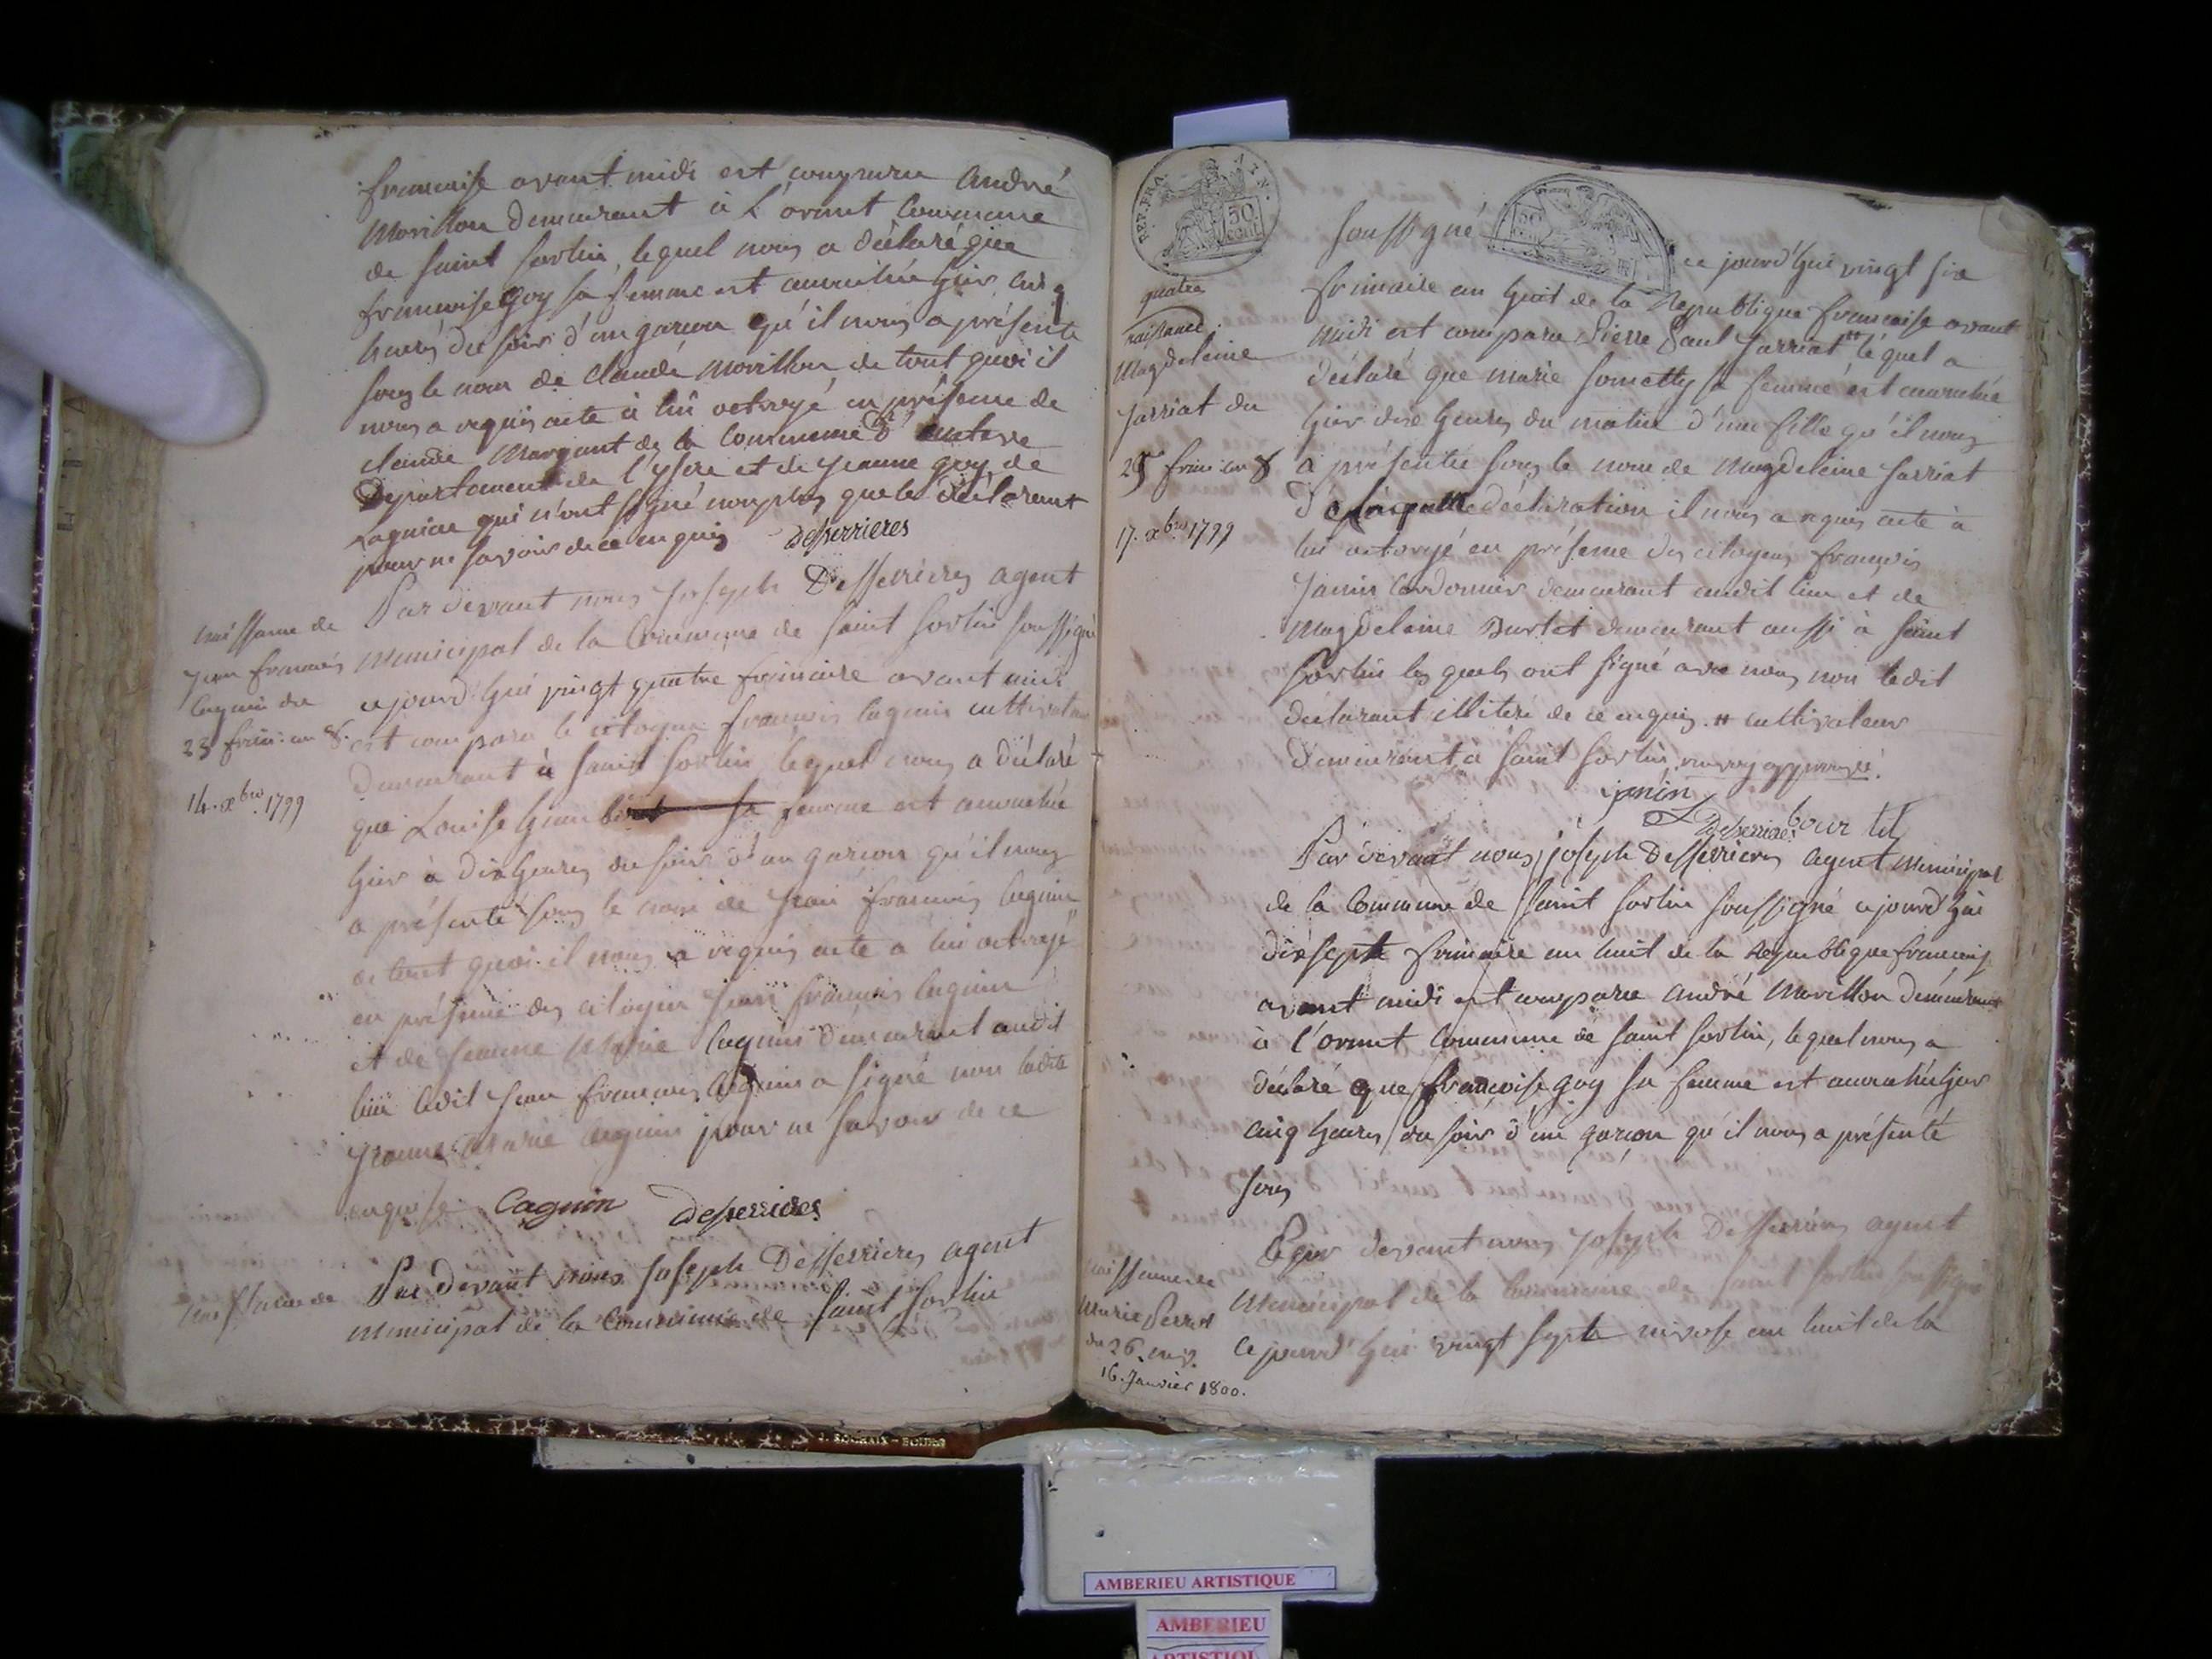 francaise avant midi est comparu andré
Morillon demeurant à L'orant Commune
de saint sorlin, lequel nous a déclaré que
francoise goy sa femme est accouchée hier cinq
heures du soir d'un garcon qu'il nous a présenté
sous le nom de claude Morillon de tout quoi il
nous a requis acte à lui octroyé en présence de
claude Margant de la Commune d'
Departement de l'ysere et de jeanne goy de
Lagnieu qui n'ont signé non plus que le déclarant
pour ne savoir de ce enquis Desserrieres
naissance de
jean francois
Caguin du
23 frim: an 8.
14. xbre 1799
Par devant nous joseph Desserrieres agent
Municipal de la Commune de saint sorlin soussigné
cejourd'hui vingt quatre frimaire avant midi
est comparu le citoyen francois Caguin cultivateur
demeurant à saint sorlin lequel nous a déclaré
que Louise humbert sa femme est accouchée
hier à dix heures du soir d'un garcon qu'il nous
a présenté sous le nom de jean francois Caguin
de tout quoi il nous a requis acte à lui octroyé
en présence des citoyen jean francois Caguin
et de jeanne Marie Caguin demeurant audit
lieu ledit jean francois Caguin a signé non ladite
jeanne Marie Caguin pour ne savoir de ce
enquise Caguin Desserrieres
naissance de
Par devant nous joseph Desserrieres agent
Municipal de la Commune de saint sorlin
REP. FRA.
50
cent
AIN.
quatre
naissance
Magdeleine
jarriat du
25 frim: an 8
17. xbre 1799
soussigné ce jourd'hui vingt six
frimaire an huit de la Republique francaise avant
midi est comparu Pierre Paul jarriat # lequel a
déclaré que marie sa femme est accouchée
hier dix heures du matin d'une fille qu'il nous
a présentée sous le nom de Magdeleine jarriat
déclaration il nous a requis acte à
lui octroyé en présence des citoyens françois
janin Cordonnier demeurant audit lieu et de
Magdeleine Burtet demeurant aussi à saint
sorlin lesquels ont signé avec nous non ledit
déclarant illiteré de ce enquis. # cultivateur
demeurant à saint sorlin, renvoy approuvé.
janin
Desserrieres bour tet
Par devant nous joseph Desserrieres agent Municipal
de la Commune de saint sorlin soussigné cejourd'hui
dix sept frimaire an huit de la Republique francaise
avant midi est comparu andré Morillon demeurant
à l'orant Commune de saint sorlin, lequel nous a
déclaré que francoise goy sa femme est accouchée hier
cinq heures du soir d'un garcon qu'il nous a présenté
sous
naissance de
Marie Perret
du 26. niv.
16. Janvier 1800.
Par devant nous joseph Desserrieres agent
Municipal de la Commune de saint sorlin soussigné
ce jourd'hui vingt sept nivose an huit de la
AMBERIEU ARTISTIQUE
AMBERIEU
ARTISTIQUE